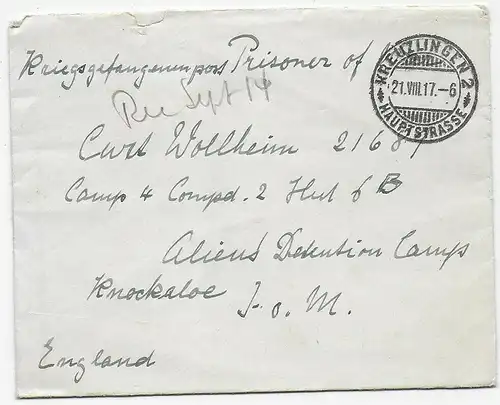 Kriegsgefangenenpost Prisoner of
Rec Sept 14
KREUZLINGEN 2
21.VIII.17.-6
HAUPTSTRASSE
Curt Wollheim 21687
Camp 4 Compd. 2 Hut 6 B
Aliens' Detention Camp
Knockaloe I. o. M.
England